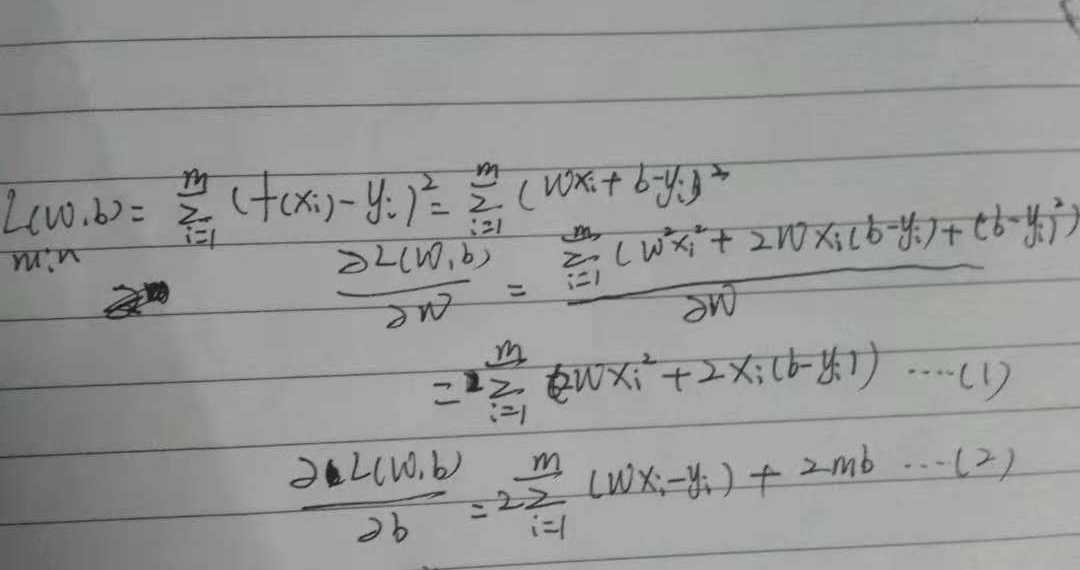 L(w,b) = \sum_{i=1}^{m} (f(x_i) - y_i)^2 = \sum_{i=1}^{m} (wx_i + b - y_i)^2
min
\frac{∂L(w,b)}{∂w} = \frac{\sum_{i=1}^{m} (w^2x_i^2 + 2wx_i(b-y_i) + (b-y_i)^2)}{∂w}
= \sum_{i=1}^{m} (2wx_i^2 + 2x_i(b-y_i)) ····(1)
\frac{∂L(w,b)}{∂b} = 2\sum_{i=1}^{m} (wx_i - y_i) + 2mb ···(2)